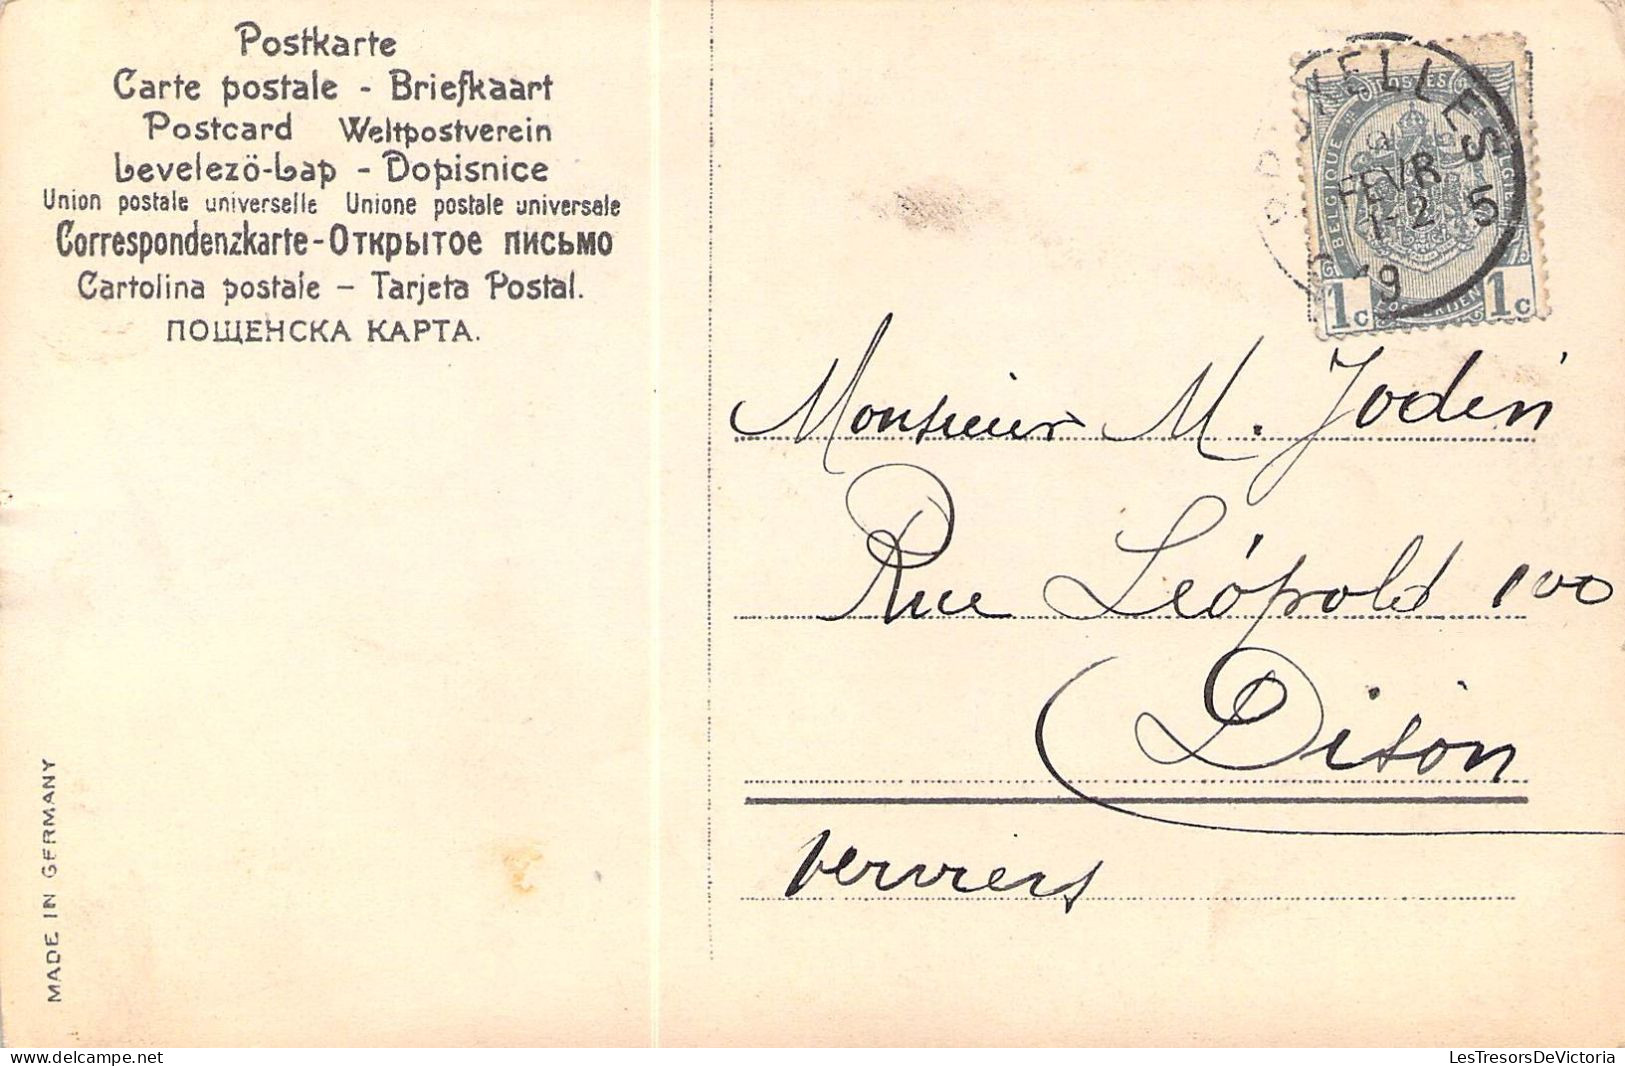 Postkarte
Carte postale - Briefkaart
Postcard Weltpostverein
Levelezö-Lap - Dopisnice
Union postale universelle Unione postale universale
Correspondenzkarte - Открытое письмо
Cartolina postale - Tarjeta Postal.
ПОЩЕНСКА КАРТА.
MADE IN GERMANY
POSTES
BELGIQUE
BELGIE
1c 1c
FEVR
1-2
5
Monsieur M. Jodin
Rue Léopold 100
Dison
Verviers
delcampe.net
LesTresorsDeVictoria